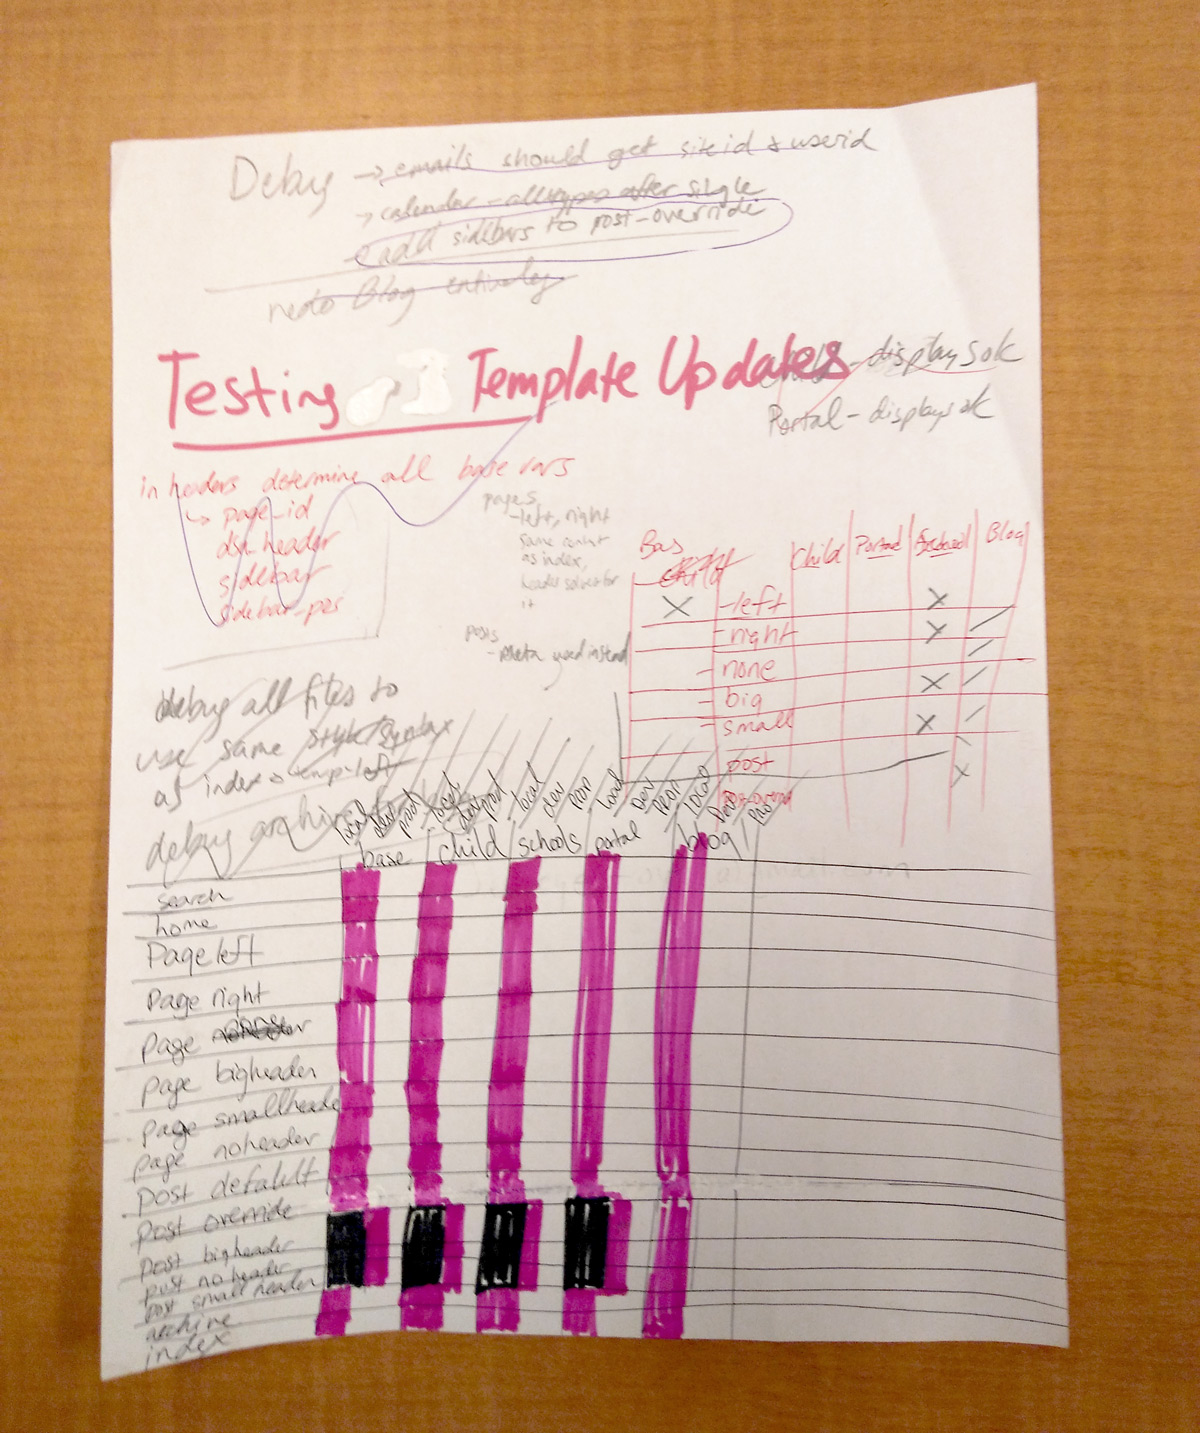 Debug → emails should get siteid & userid
→ calender - all types after single
add sidebars to post-override
redo Blog entirely
Testing Template Updates
Child - displays ok
Portal - displays ok
in headers determine all base vars
→ page-id
dsn-header
sidebar
sidebar-pos
pages
-left, right
same content
as index,
header solves for
it
posts
- Meta used instead
Bas
Child
Child Portal Blog
X - left X
- right X
- none
- big X
- small X
post
X
debug all files to
use same style/syntax
as index → temp-left
debug archive
local dev prod local dev prod local dev prod local dev prod local dev prod
base child schools portal blog
search
home
Page left
Page right
Page
page bigheader
page smallheader
page noheader
post default
post override
post bigheader
post no header
post small header
archive
index